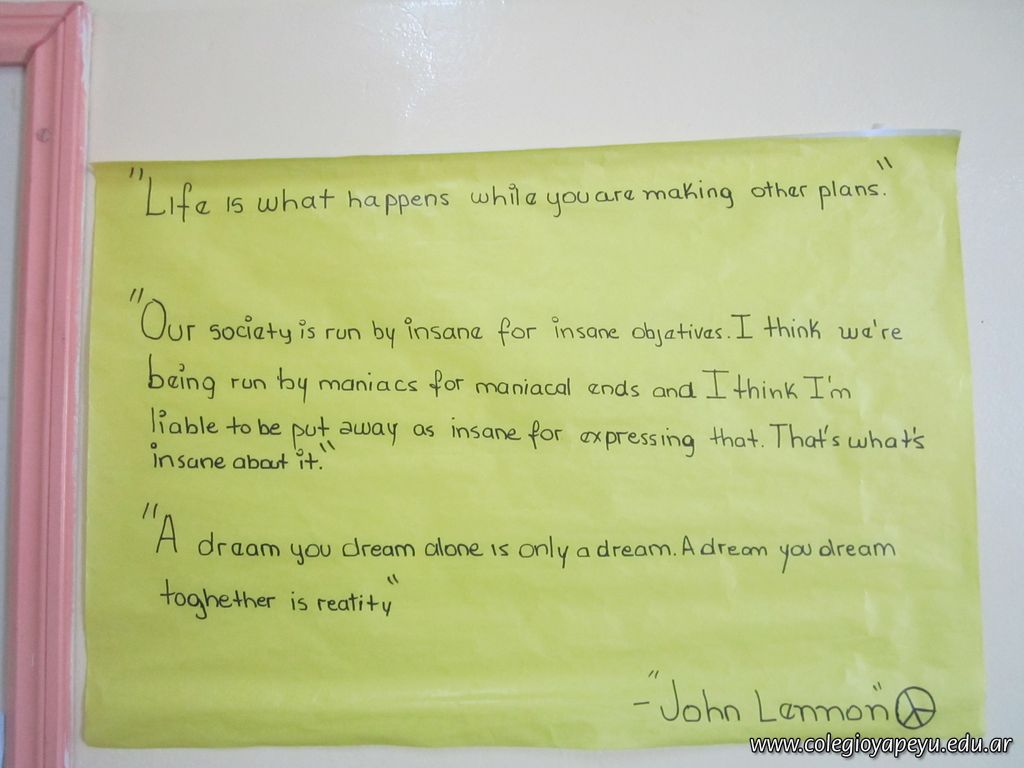 "Life is what happens while you are making other plans."
"Our society is run by insane for insane objetives. I think we're
being run by maniacs for maniacal ends and I think I'm
liable to be put away as insane for expressing that. That's what's
insane about it."
"A dream you dream alone is only a dream. A dream you dream
toghether is reatity"
- "John Lennon"
www.colegioyapeyu.edu.ar